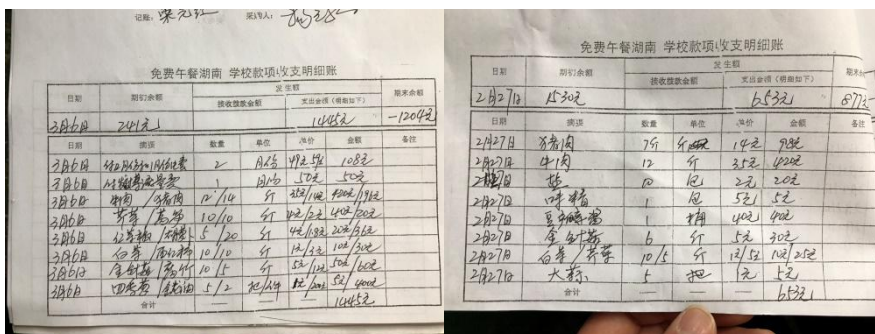 记账: 采购人:
免费午餐湖南 学校款项收支明细账
日期 期初余额 发生额 期末余额
接收拨款金额 支出金额（明细如下）
3月6日 241元 1445元 -1204元
日期 摘要 数量 单位 单价 金额 备注
3月6日 2 月份 108元
3月6日 1 月份 50元 50元
3月6日 牛肉/猪肉 12/14 斤 35元/14元 420元/196元
3月6日 10/10 斤 4元/2元 40元/20元
3月6日 5/20 斤 4元/1.8元 20元/36元
3月6日 白菜/西红柿 10/10 斤 1元/3元 10元/30元
3月6日 金针菇/ 10/5 斤 5元/12元 50元/60元
3月6日 5/2 1元/200元 5元/400元
合计 —— —— —— 1445元
免费午餐湖南 学校款项收支明细账
日期 期初余额 发生额 期末余
接收拨款金额 支出金额（明细如下）
2月27日 1530元 653元 877元
日期 摘要 数量 单位 单价 金额 备注
2月27日 猪肉 7斤 斤 14元 98元
2月27日 牛肉 12 斤 35元 420元
2月27日 盐 10 包 2元 20元
2月27日 味精 1 包 5元 5元
2月27日 1 桶 40元 40元
2月27日 金针菇 6 斤 5元 30元
2月27日 白菜/芹菜 10/5 斤 1元/5元 10元/25元
2月27日 大蒜 5 把 1元 5元
合计 —— —— —— 653元